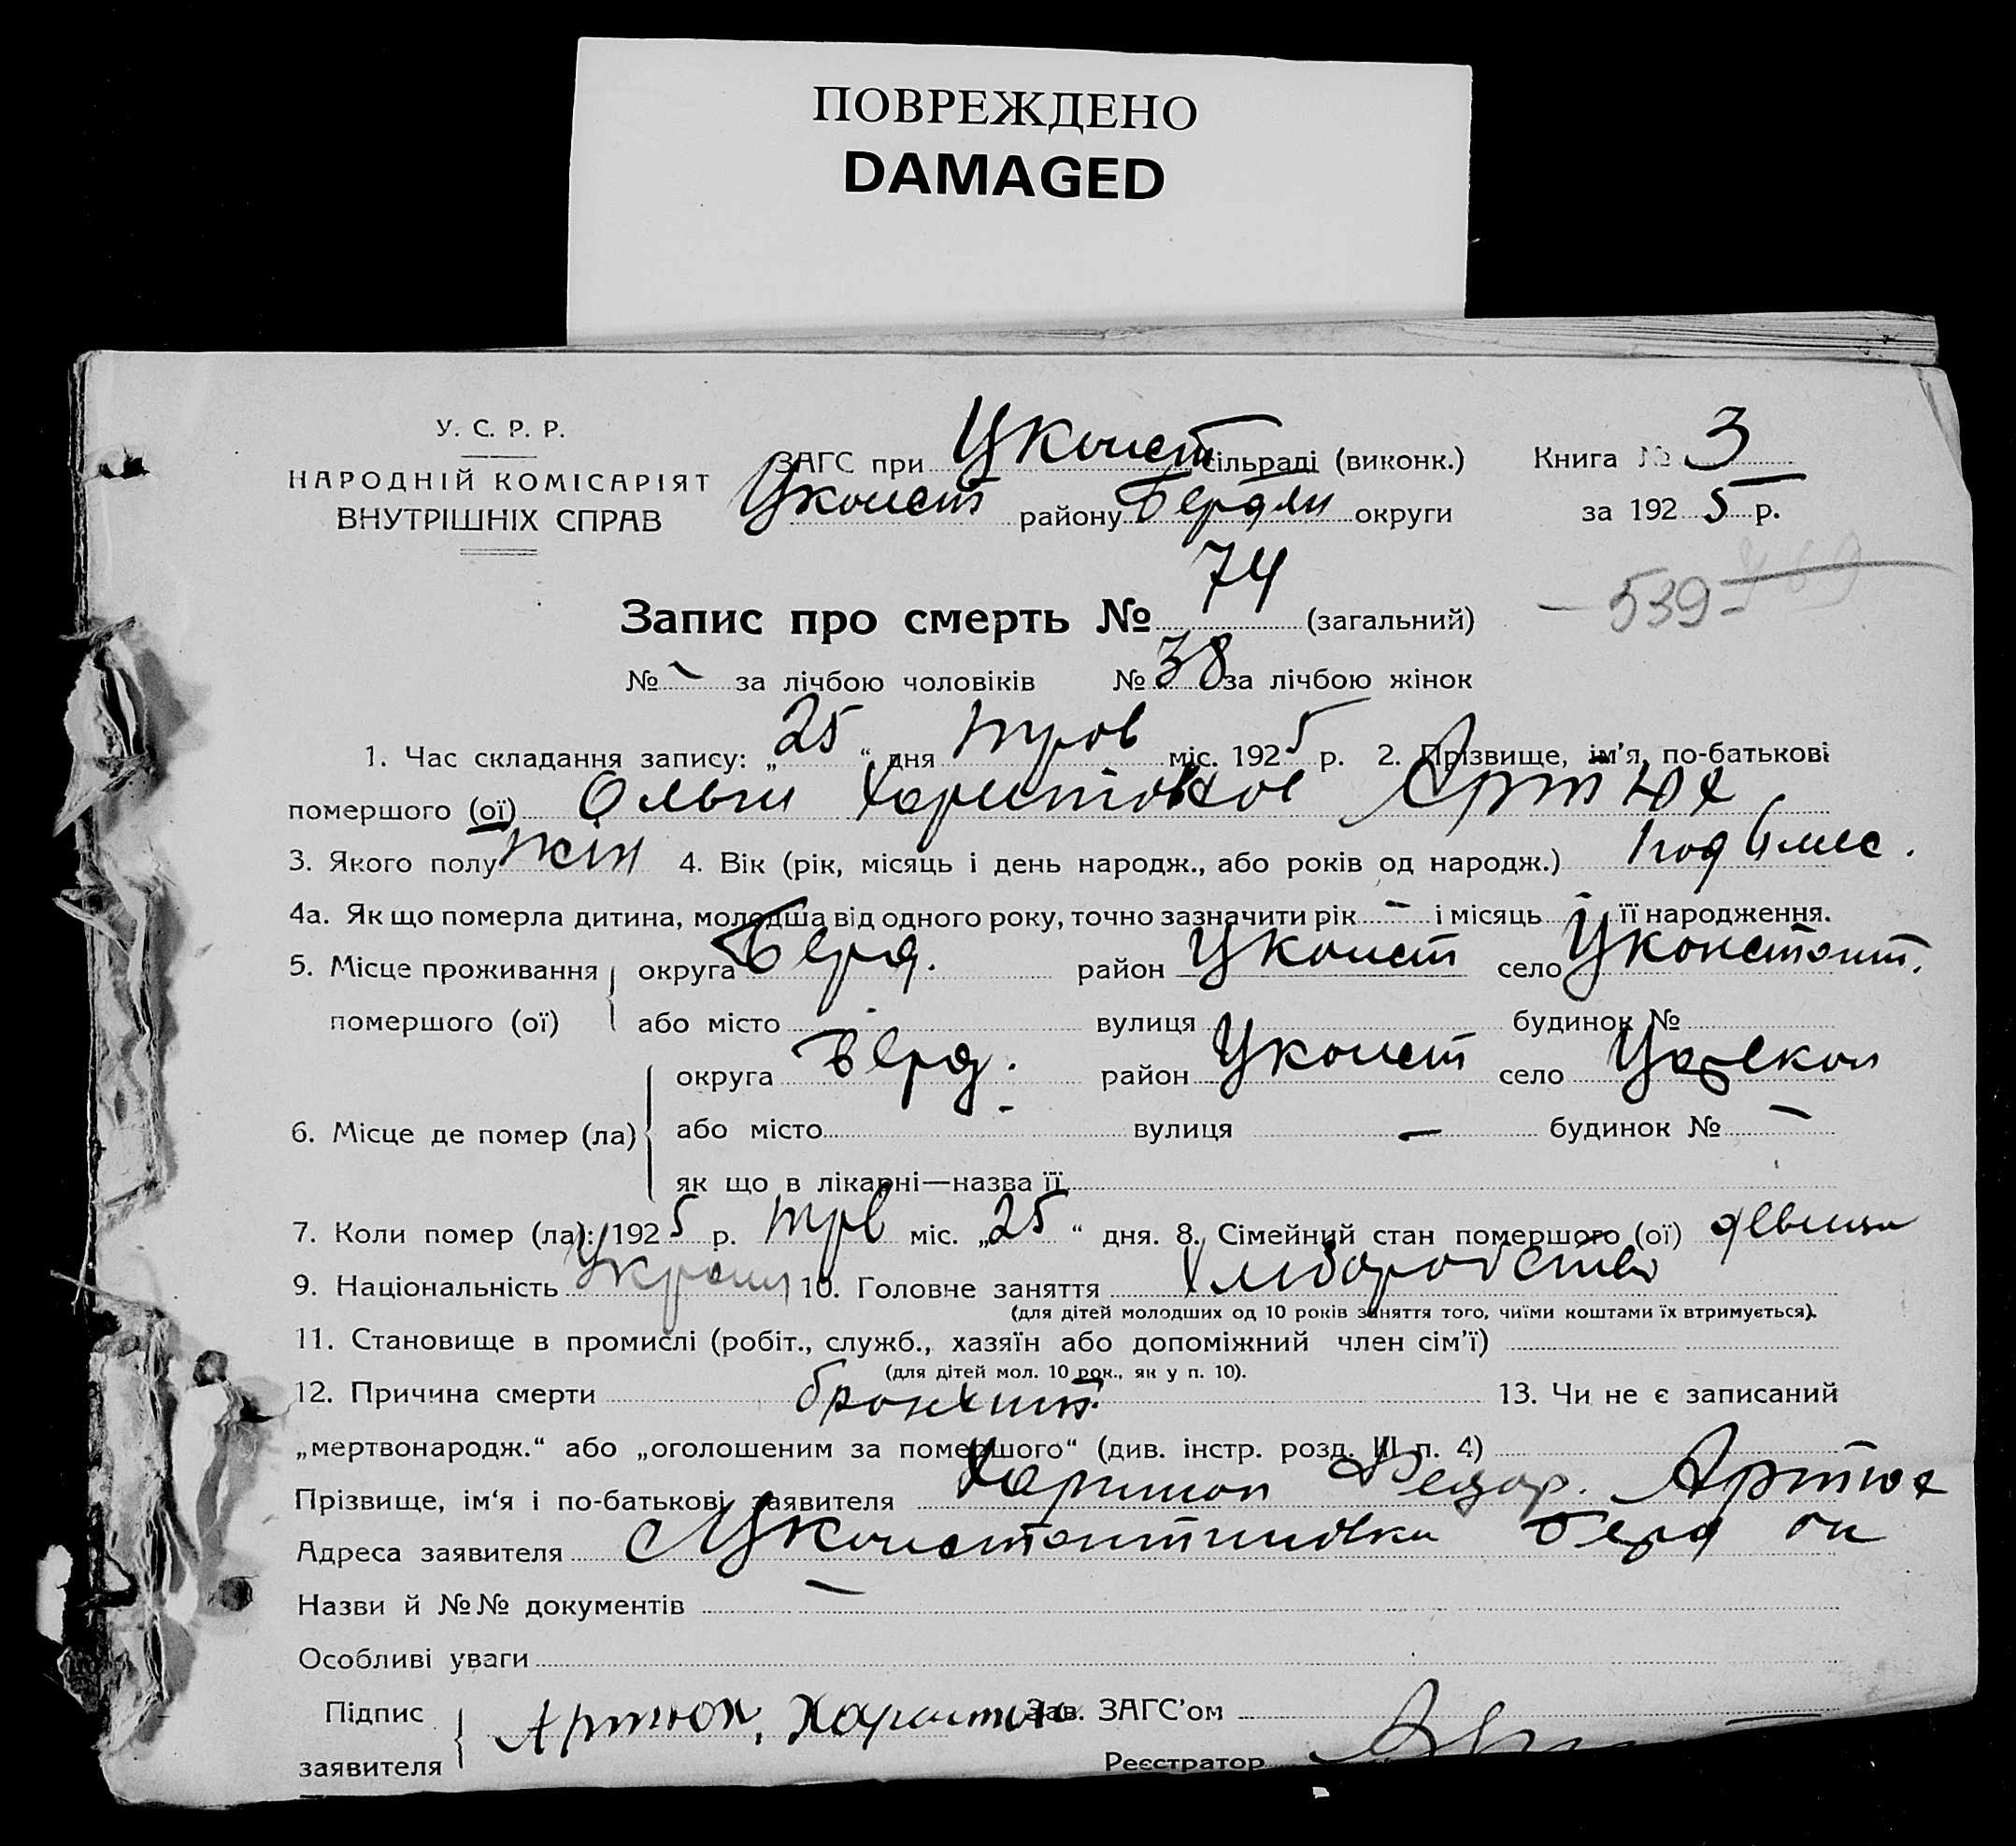 ПОВРЕЖДЕНО
DAMAGED
У. С. Р. Р.
НАРОДНІЙ КОМІСАРІЯТ
ВНУТРІШНІХ СПРАВ
ЗАГС при Цконст сільраді (виконк.)
Цконст району Бердян округи
Книга № 3
за 1925 р.
539
Запис про смерть № 74 (загальний)
№ - за лічбою чоловіків № 38 за лічбою жінок
1. Час складання запису: „25“ дня трав міс. 1925 р. 2. Прізвище, ім'я, по-батькові
помершого (ої) Ольги Артюх
3. Якого полу жін 4. Вік (рік, місяць і день народж., або років од народж.) 1 год 6 мес.
4а. Як що померла дитина, молодша від одного року, точно зазначити рік - і місяць - її народження.
5. Місце проживання округа Берд. район Цконст село Цконстант.
помершого (ої) або місто - вулиця будинок №
округа Берд. район Цконст село
6. Місце де помер (ла) або місто - вулиця - будинок № -
як що в лікарні—назва її
7. Коли помер (ла): 1925 р. трв міс. „25“ дня. 8. Сімейний стан помершого (ої) девица
9. Національність 10. Головне заняття
(для дітей молодших од 10 років заняття того, чиїми коштами їх втримується).
11. Становище в промислі (робіт., служб., хазяїн або допоміжний член сім'ї)
(для дітей мол. 10 рок., як у п. 10).
12. Причина смерти бронхит. 13. Чи не є записаний
„мертвонародж.“ або „оголошеним за помершого“ (див. інстр. розд. III п. 4)
Прізвище, ім'я і по-батькові заявителя Харитон Федор. Артюх
Адреса заявителя с Цконстантиновки Берд ок
Назви й №№ документів -
Особливі уваги
Підпис
заявителя Артюх, Харитон
Зав. ЗАГС'ом
Реєстратор